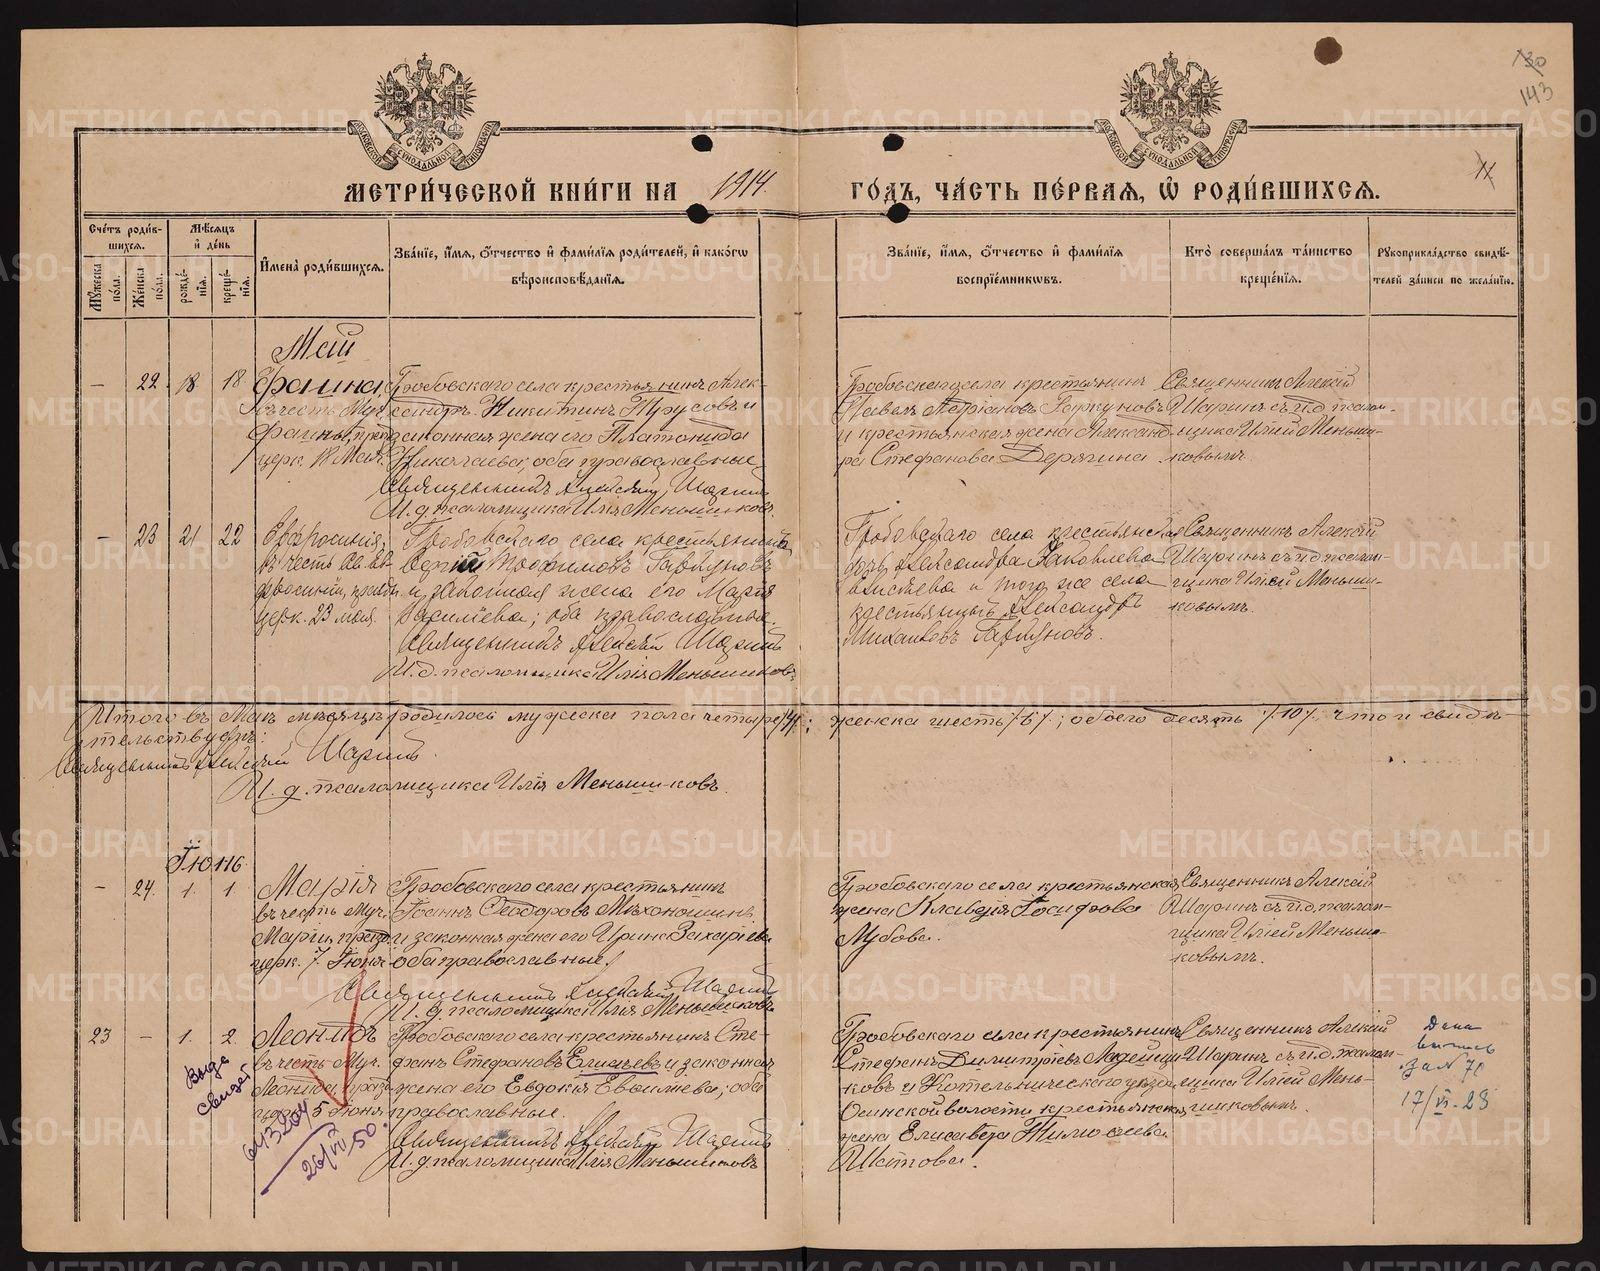 30
143
МЕТРИ́ЧЕСКОЙ КНИ́ГИ НА 1914 ГО́ДЪ, ЧА́СТЬ ПЕ́РВАЯ, Ѽ РОДИ́ВШИХСЯ.
Сче́тъ роди́в-
шихся.
Му́жеска по́ла.
Же́нска по́ла.
Мѣ́сяцъ и де́нь
рожде́нія.
креще́нія.
Имена̀ роди́вшихся.
Зва́ніе, и́мя, о́тчество и фами́лія роди́телей, и како́гѡ
вѣроисповѣ́данія.
Зва́ніе, и́мя, о́тчество и фами́лія
воспріе́мниковъ.
Кто̀ соверша́лъ та́инство
креще́нія.
Рукоприкла́дство свидѣ́-
телей за́писи по жела́нію.
Май
— 22 18 18
Фаина,
въ честь Муч.
Фаины, празд.
церк. 18 Мая.
Гробовскаго села крестьянинъ Алек-
сандръ Никитинъ Трусовъ и
законная жена его Платонида
Николаева; оба православные.
Священникъ Алексій Шаринъ
И. д. псаломщика Илія Меньшиковъ.
Гробовскаго села крестьянинъ
Павелъ
и крестьянская жена Александ-
ра Стефанова Дерягина
Священникъ Алексій
Шаринъ съ и. д. псалом-
щика Иліей Меньши-
ковымъ.
— 23 21 22
Евфросинія,
въ честь св. Ев-
фросиніи, праздн.
церк. 23 мая.
Гробовскаго села крестьянинъ
Сергій Трофимовъ Гаркуновъ
и законная жена его Марія
Василіева; оба православные.
Священникъ Алексій Шаринъ
И. д. псаломщика Илія Меньшиковъ.
Гробовскаго села крестьянская
дочь Александра Іаковлева
и того же села
крестьянинъ Александръ
Михаиловъ Гаркуновъ.
Священникъ Алексій
Шаринъ съ и. д. псалом-
щика Иліей Меньши-
ковымъ.
Итого въ Маѣ мѣсяцѣ родилось мужеска пола четыре /4/; женска шесть /6/; обоего десять /10/ что и свидѣ-
тельствуемъ:
Священникъ Алексій Шаринъ.
И. д. псаломщика Илія Меньшиковъ.
Іюнь
— 24. 1. 1
Марія
въ честь Муч.
Маріи, празд.
церк. 7. Іюня
Гробовскаго села крестьянинъ
Іоаннъ Ѳеодоровъ Мѣхоношинъ
и законная жена его Ирина Захаріева
оба православные.
Священникъ Алексій Шаринъ
И. д. псаломщика Илія Меньшиковъ
Гробовскаго села крестьянская
жена Клавдія Іосифова
Лубова.
Священникъ Алексій
Шаринъ съ и. д. псалом-
щика Иліей Меньши-
ковымъ.
23 — 1. 2.
Леонидъ
въ честь Муч.
Леонида празд.
церк. 5 Іюня
Гробовскаго села крестьянинъ Сте-
фанъ Стефановъ Елисѣевъ и законная
жена его Евдокія Евсиліева; оба
православные.
Священникъ Алексій Шаринъ
И. д. псаломщика Илія Меньшиковъ
Гробовскаго села крестьянинъ
Стефанъ Димитріевъ Ладейщи-
ковъ и Котельническаго уѣзда
крестьянская
жена Елисавета
Шатова.
Священникъ Алексій
Шаринъ съ и. д. псалом-
щика Иліей Мень-
шиковымъ.
Дана
выпись
за № 70
17/VI-23
Выда
свидет
26/VI 50.
METRIKI.GASO-URAL.RU